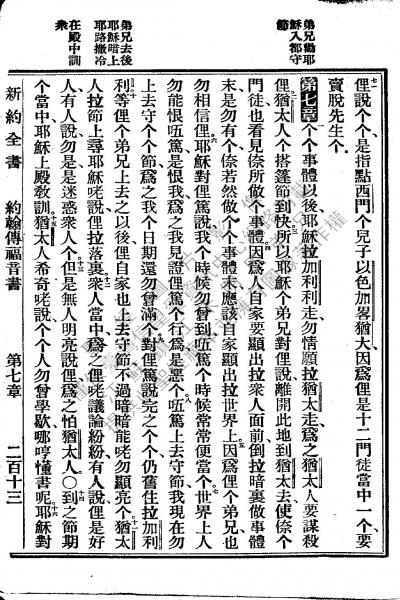 弟兄勸耶
穌入都守
節
弟兄去後
耶穌暗上
耶路撒冷
在殿中訓
衆
俚說个个是指點西門个兒子以色加畧猶大因爲俚是十二門徒當中一个要
賣脫先生个
第七章 个个事體以後耶穌拉加利利走勿情願拉猶太走爲之猶太人要謀殺
俚猶太人个搭篷節到快所以耶穌个弟兄對俚說離開此地到猶太去使倷个
門徒也看見倷所做个事體因爲人自家要顯出拉衆人面前倒拉暗裏做事體
末是勿有个倷若然做个个事體末應該自家顯出拉世界上因爲俚个弟兄也
勿相信俚耶穌對俚篤說我个時候勿曾到唔篤个時候常常便當个世界上人
勿能恨唔篤是恨我爲之我見證俚篤个行爲是惡个唔篤上去守節我現在勿
上去守个个節爲之我个日期還勿曾滿个對俚篤說完之个个仍舊住拉加利
利等俚个弟兄上去之以後俚自家也上去守節不過暗暗能咾勿顯亮个猶太
人拉節上尋耶穌咾說俚拉落裏衆人當中爲之俚咾議論紛紛有人說俚是好
人有人說勿是是迷惑衆人个但是無人明亮說俚爲之怕猶太人○到之節期
个當中耶穌上殿敎訓猶太人希奇咾說个个人勿曾學歇哪哼懂書呢耶穌對
新約全書 約翰傳福音書 第七章 二百十三